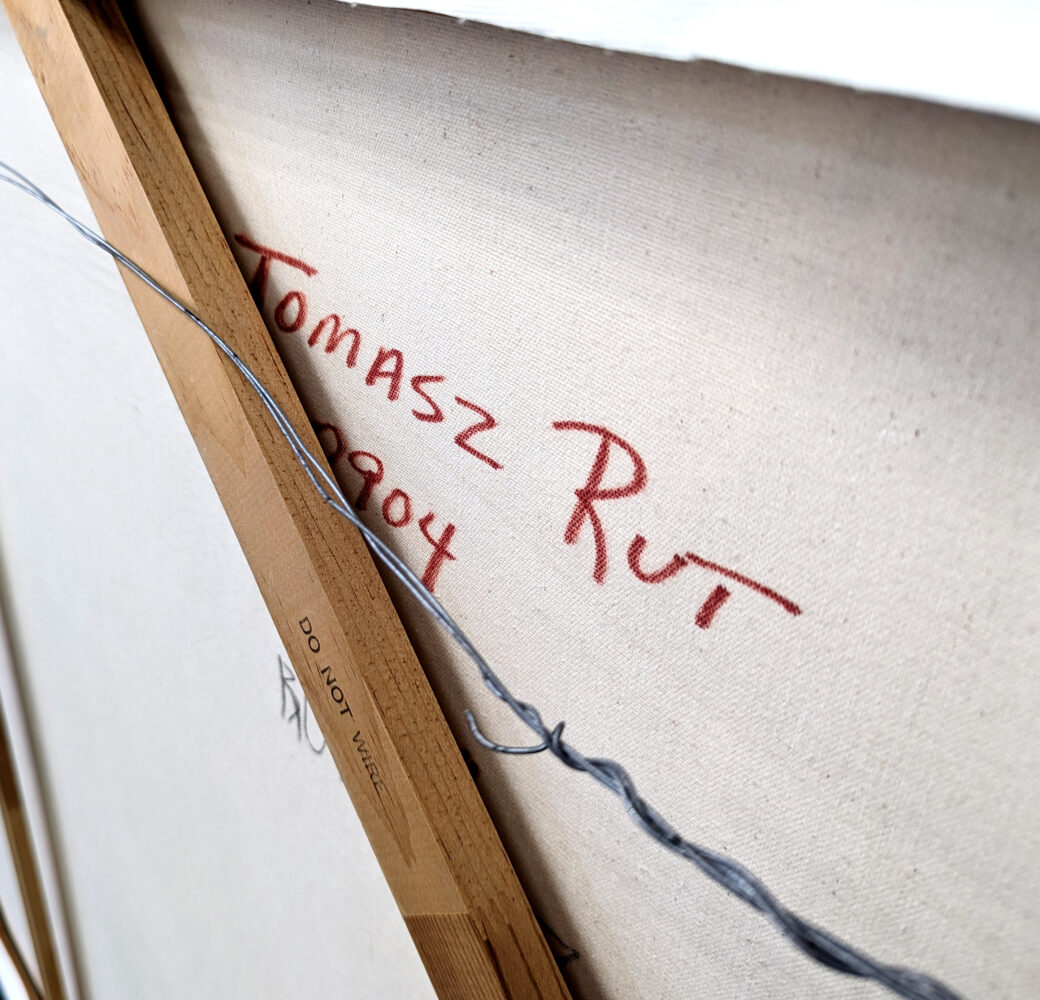 TOMASZ RUT
0904
DO NOT WIRE